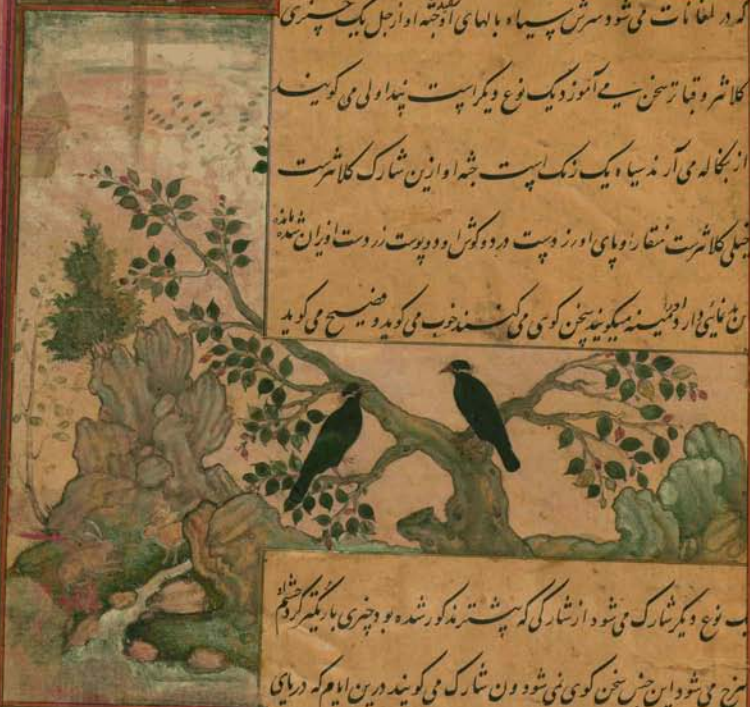 که در لمغانات می شود سرش سیاه بالهای او ابلق جثه او از جل یک چیزی
کلانتر و قبا تر سخن نمی آموزد یک نوع دیگر است پیندا ولی می گویند
از بنکاله می آرند سیاه یک رنک است جثه او ازین شارک کلانتر است
خیلی کلانتر است منقار او و پای او زرد است در دو گوش او دو پوست زرد است آویزان شده مانده
بدنمائی دارد او را مینه میگویند سخن گوی می کنند خوب می گوید و فصیح می گوید
یک نوع دیگر شارک می شود از شارکی که پیشتر مذکور شده بود چیزی باریکتر گرد چشم او
سرخ می شود این جنس سخن گوی نمی شود ون شارک می گویند درین ایام که دریای